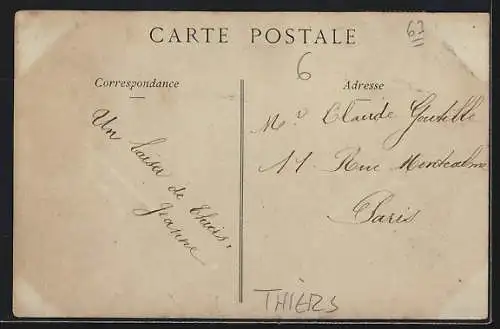 CARTE POSTALE
67
6
Correspondance
Adresse
Un baiser de Thiers,
Jeanne
Mr Claude Goutille
11 Rue Montcalm
Paris
THIERS